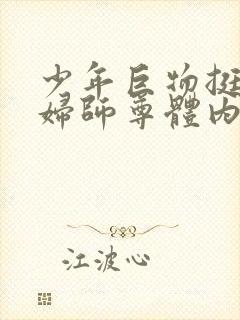 少年巨物挺
婦師尊體内
江波心